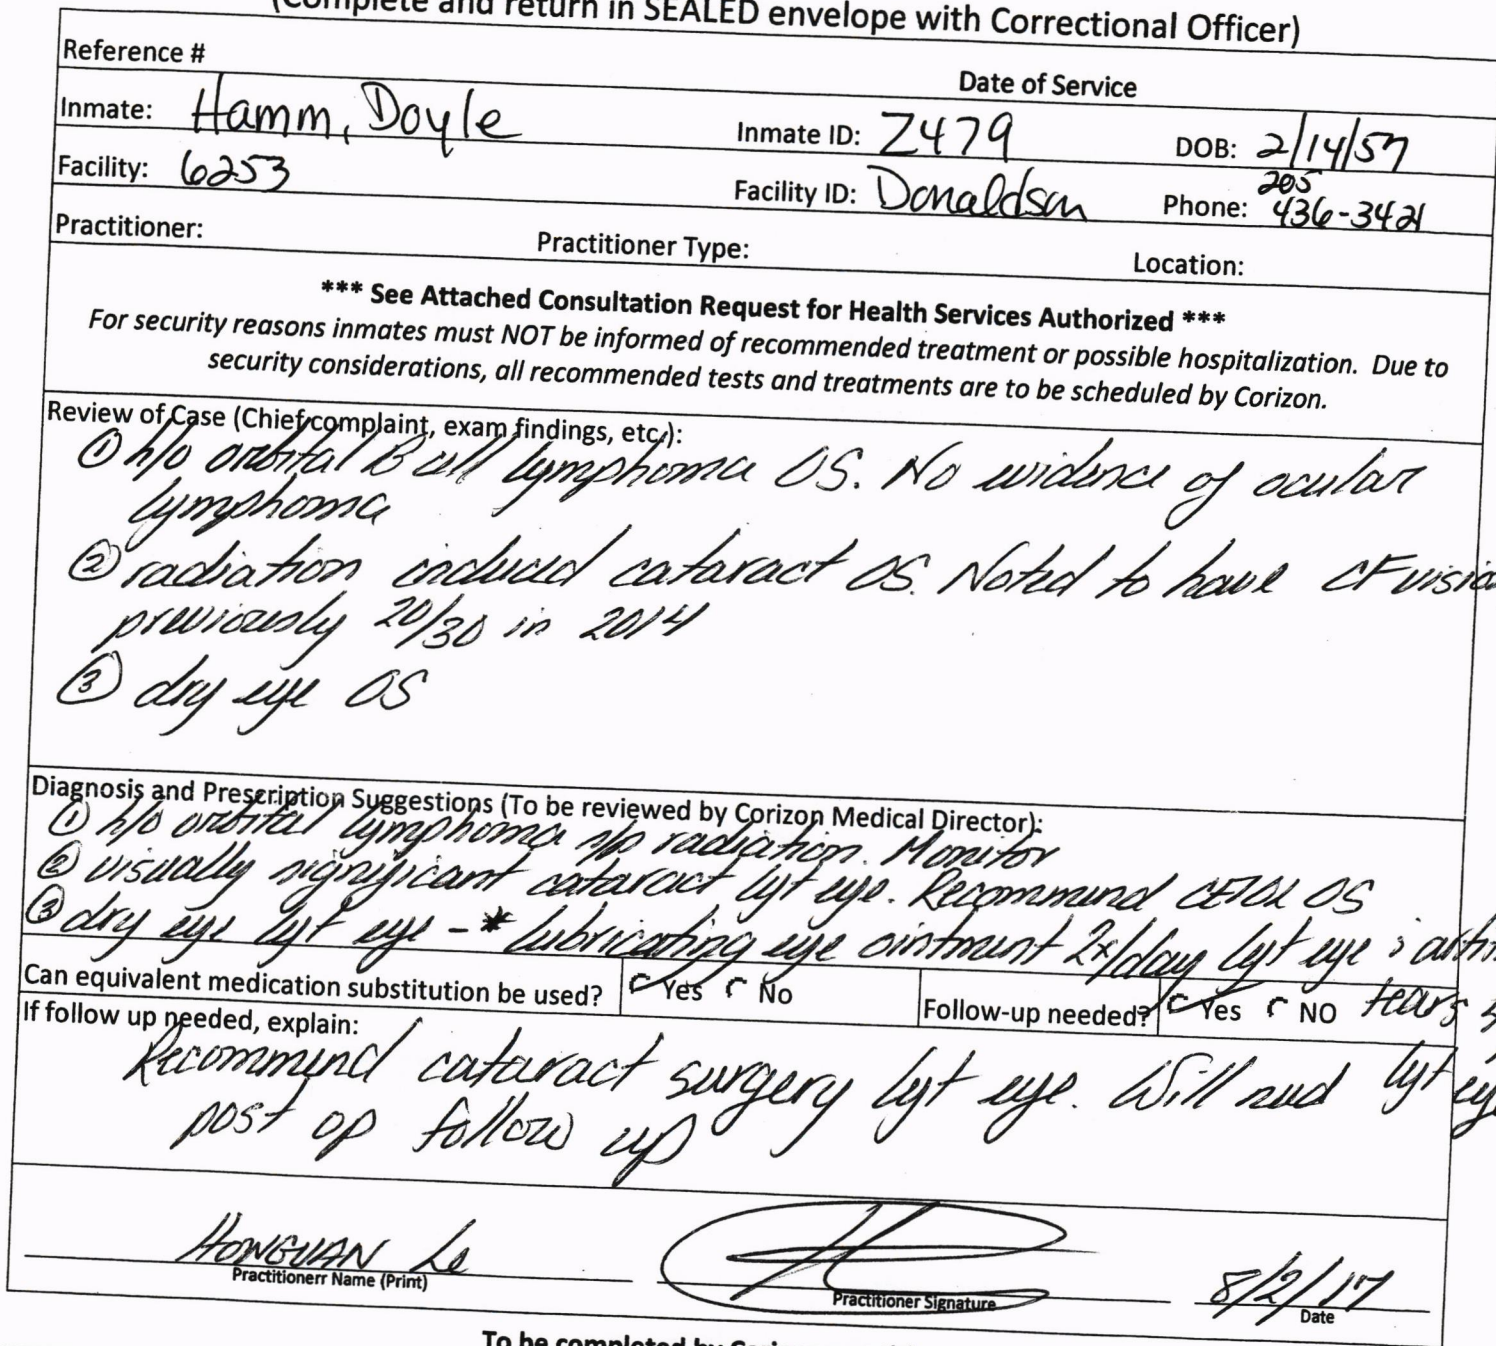 (Complete and return in SEALED envelope with Correctional Officer)
Reference #
Date of Service
Inmate: Hamm, Doyle Inmate ID: Z479 DOB: 2/14/57
Facility: 6253 Facility ID: Donaldson Phone: 205 436-3421
Practitioner: Practitioner Type: Location:
*** See Attached Consultation Request for Health Services Authorized ***
For security reasons inmates must NOT be informed of recommended treatment or possible hospitalization. Due to
security considerations, all recommended tests and treatments are to be scheduled by Corizon.
Review of Case (Chief complaint, exam findings, etc.):
① h/o orbital B cell lymphoma OS. No evidence of ocular
lymphoma
② radiation induced cataract OS. Noted to have CF visio
previously 20/30 in 2014
③ dry eye OS
Diagnosis and Prescription Suggestions (To be reviewed by Corizon Medical Director):
① h/o orbital lymphoma s/p radiation. Monitor
② visually significant cataract left eye. Recommend CE/IOL OS
③ dry eye left eye - * lubricating eye ointment 2x/day left eye
tears
Can equivalent medication substitution be used? Yes No Follow-up needed? Yes NO
If follow up needed, explain:
Recommend cataract surgery left eye. Will need left eye
post op follow up
HONGUAN Le
Practitionerr Name (Print) Practitioner Signature
8/2/17
Date
To be completed by